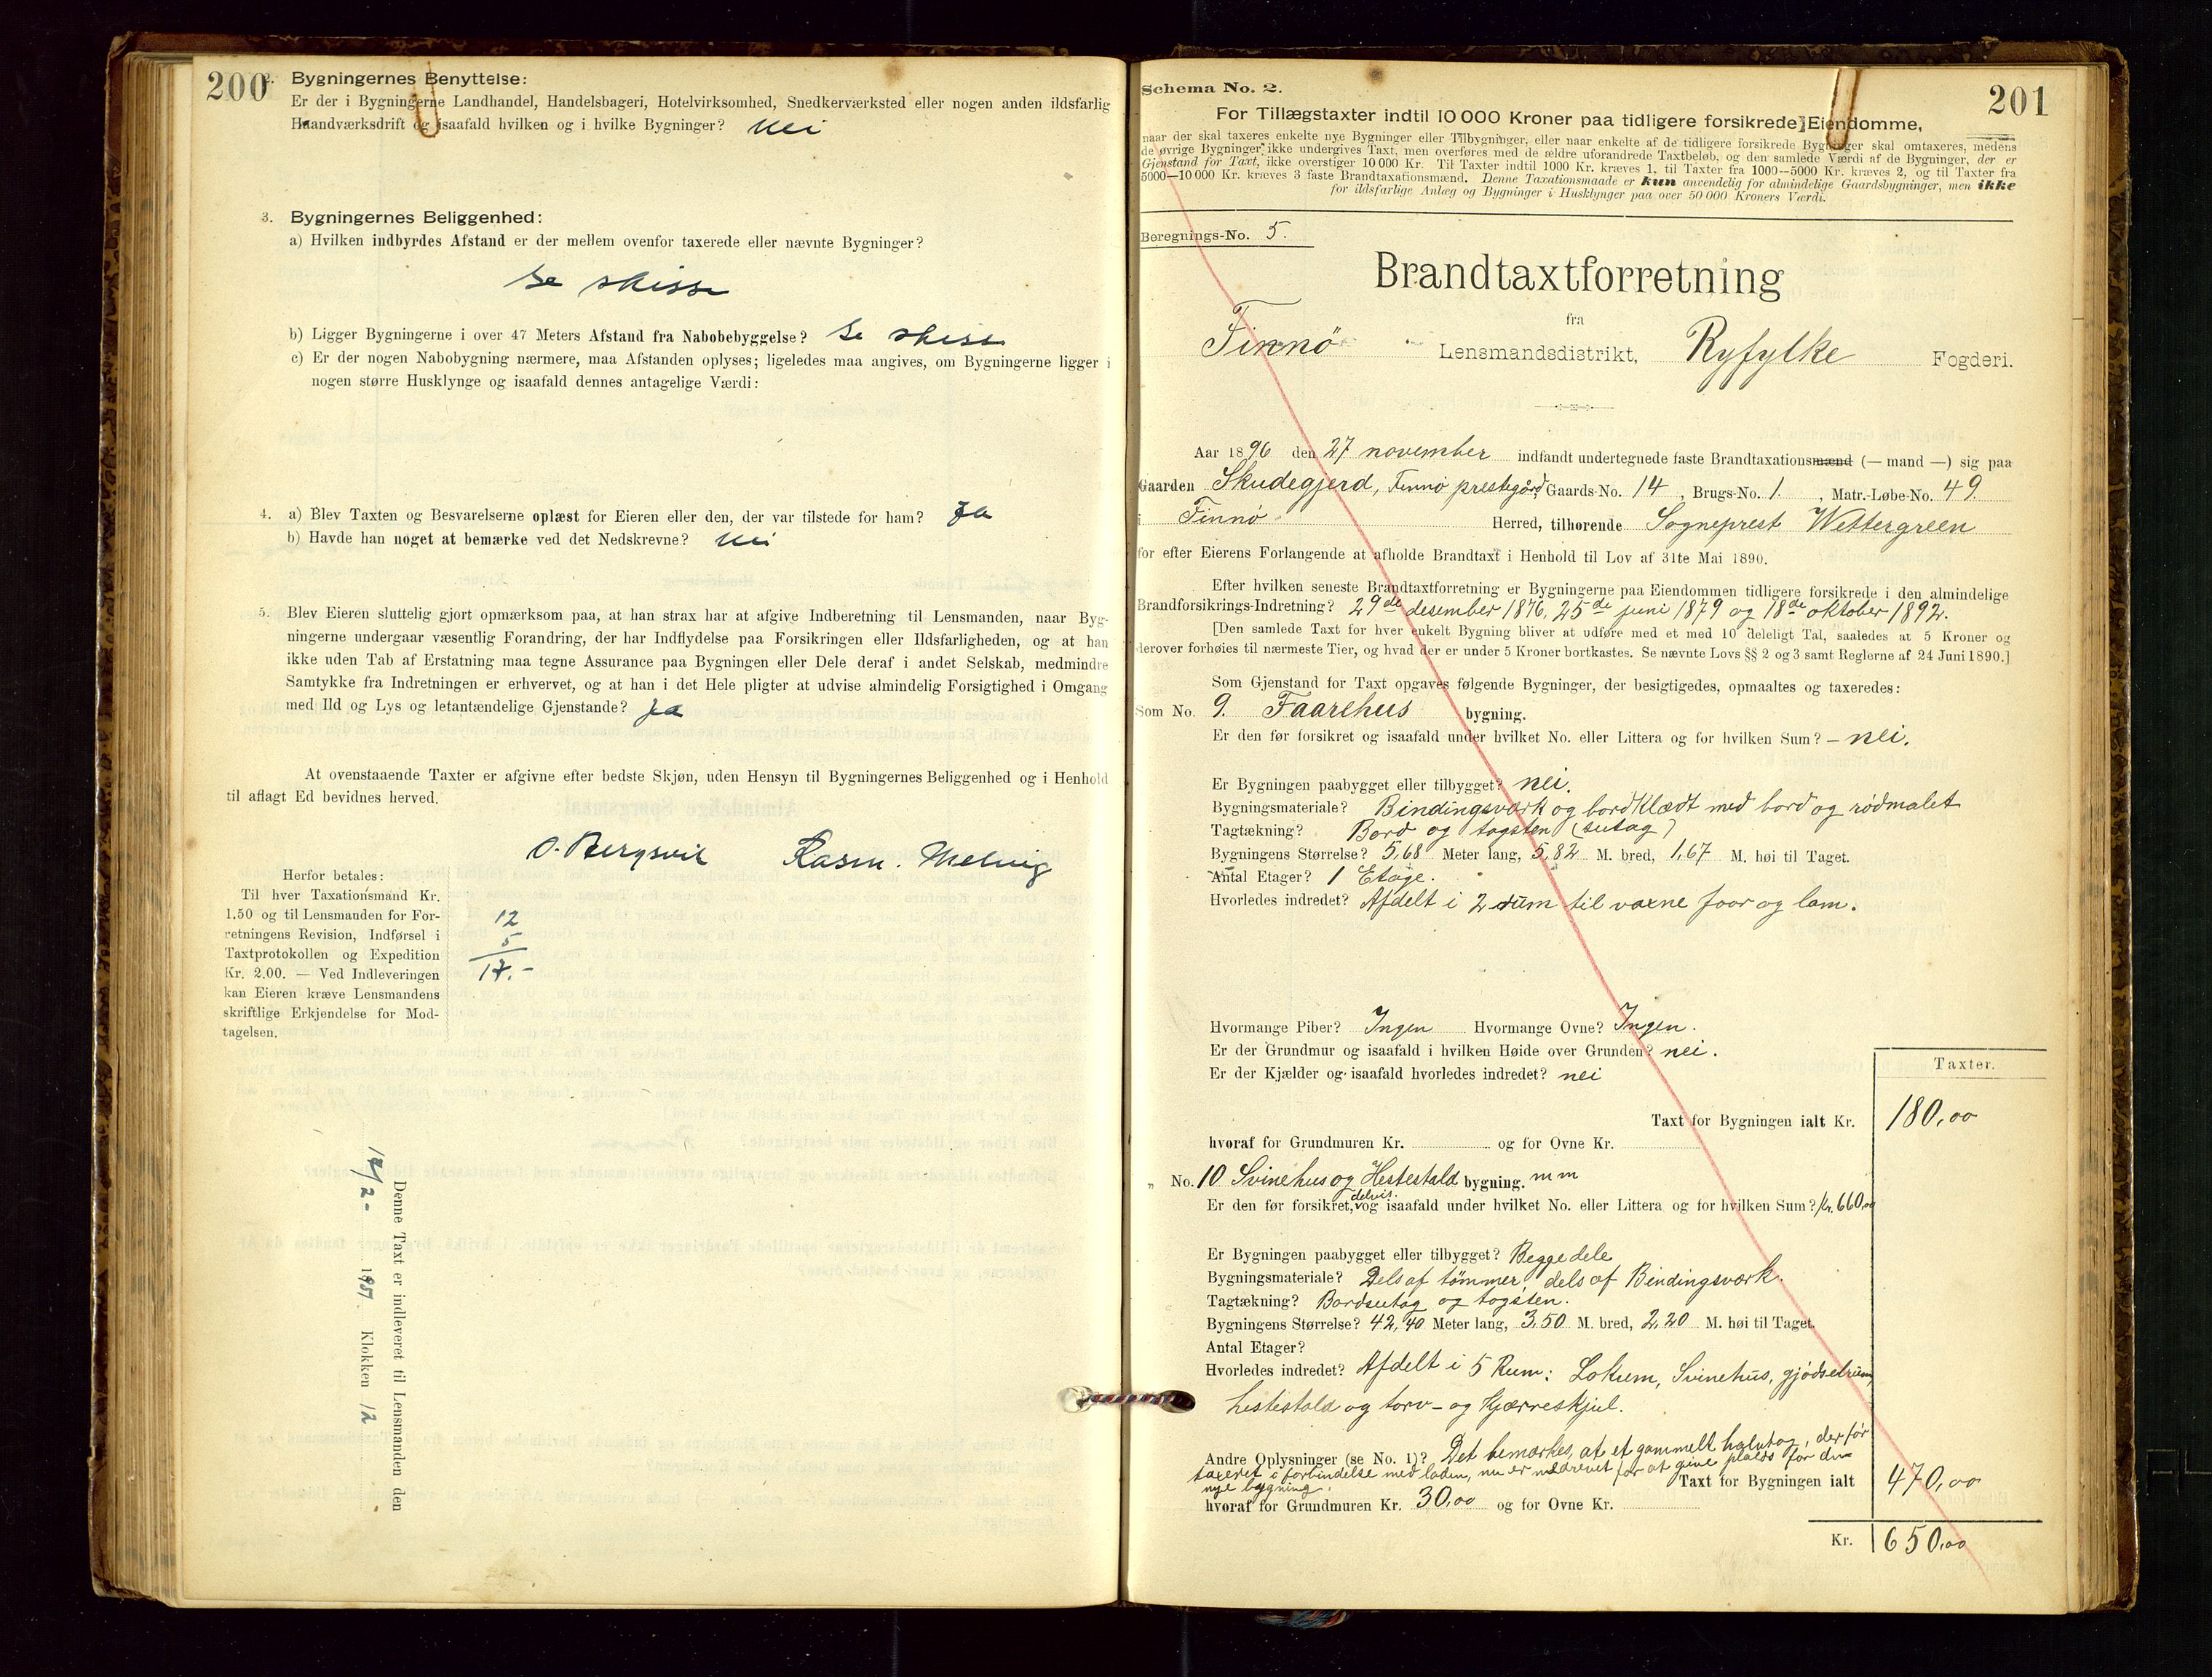 200
2. Bygningernes Benyttelse:
Er der i Bygningerne Landhandel, Handelsbageri, Hotelvirksomhed, Snedkerværksted eller nogen anden ildsfarlig
Haandværksdrift og isaafald hvilken og i hvilke Bygninger? Nei
3. Bygningernes Beliggenhed:
a) Hvilken indbyrdes Afstand er der mellem ovenfor taxerede eller nævnte Bygninger?
Se skisse
b) Ligger Bygningerne i over 47 Meters Afstand fra Nabobebyggelse? Se skisse
c) Er der nogen Nabobygning nærmere, maa Afstanden oplyses; ligeledes maa angives, om Bygningerne ligger i
nogen større Husklynge og isaafald dennes antagelige Værdi:
4. a) Blev Taxten og Besvarelserne oplæst for Eieren eller den, der var tilstede for ham? Ja
b) Havde han noget at bemærke ved det Nedskrevne? Nei
5. Blev Eieren sluttelig gjort opmærksom paa, at han strax har at afgive Indberetning til Lensmanden, naar Byg-
ningerne undergaar væsentlig Forandring, der har Indflydelse paa Forsikringen eller Ildsfarligheden, og at han
ikke uden Tab af Erstatning maa tegne Assurance paa Bygningen eller Dele deraf i andet Selskab, medmindre
Samtykke fra Indretningen er erhvervet, og at han i det Hele pligter at udvise almindelig Forsigtighed i Omgang
med Ild og Lys og letantændelige Gjenstande? Ja
At ovenstaaende Taxter er afgivne efter bedste Skjøn, uden Hensyn til Bygningernes Beliggenhed og i Henhold
til aflagt Ed bevidnes herved.
O. Bergsvik Rasm. Melvig
Herfor betales:
Til hver Taxationsmand Kr.
1.50 og til Lensmanden for For-
retningens Revision, Indførsel i
Taxtprotokollen og Expedition
Kr. 2.00. — Ved Indleveringen
kan Eieren kræve Lensmandens
skriftlige Erkjendelse for Mod-
tagelsen.
12
5
17.-
Denne Taxt er indleveret til Lensmanden den
12/2- 1907 Klokken 12
201
Schema No. 2.
For Tillægstaxter indtil 10 000 Kroner paa tidligere forsikrede Eiendomme,
naar der skal taxeres enkelte nye Bygninger eller Tilbygninger, eller naar enkelte af de tidligere forsikrede Bygninger skal omtaxeres, medens
de øvrige Bygninger ikke undergives Taxt, men overføres med de ældre uforandrede Taxtbeløb, og den samlede Værdi af de Bygninger, der er
Gjenstand for Taxt, ikke overstiger 10 000 Kr. Til Taxter indtil 1000 Kr. kræves 1, til Taxter fra 1000—5000 Kr. kræves 2, og til Taxter fra
5000—10 000 Kr. kræves 3 faste Brandtaxationsmænd. Denne Taxationsmaade er kun anvendelig for almindelige Gaardsbygninger, men ikke
for ildsfarlige Anlæg og Bygninger i Husklynger paa over 50 000 Kroners Værdi.
Beregnings-No. 5.
Brandtaxtforretning
fra
Finnö Lensmandsdistrikt, Ryfylke Fogderi.
Aar 1896 den 27 november indfandt undertegnede faste Brandtaxationsmænd (— mand —) sig paa
Gaarden Skudegjerd, Finnö prestegård Gaards-No. 14, Brugs-No. 1., Matr.-Løbe-No. 49.
i Finnö Herred, tilhørende Sogneprest Wettergreen
for efter Eierens Forlangende at afholde Brandtaxt i Henhold til Lov af 31te Mai 1890.
Efter hvilken seneste Brandtaxtforretning er Bygningerne paa Eiendommen tidligere forsikrede i den almindelige
Brandforsikrings-Indretning? 29de desember 1876, 25de juni 1879 og 18de oktober 1892.
[Den samlede Taxt for hver enkelt Bygning bliver at udføre med et med 10 deleligt Tal, saaledes at 5 Kroner og
derover forhøies til nærmeste Tier, og hvad der er under 5 Kroner bortkastes. Se nævnte Lovs §§ 2 og 3 samt Reglerne af 24 Juni 1890.]
Som Gjenstand for Taxt opgaves følgende Bygninger, der besigtigedes, opmaaltes og taxeredes:
Som No. 9. Faarehus bygning.
Er den før forsikret og isaafald under hvilket No. eller Littera og for hvilken Sum? – nei.
Er Bygningen paabygget eller tilbygget? nei.
Bygningsmateriale? Bindingsværk og bordklædt med bord og rödmalet
Tagtækning? Bord og tagsten (sutag)
Bygningens Størrelse? 5,68 Meter lang, 5,82 M. bred, 1,67 M. høi til Taget.
Antal Etager? 1 Etage.
Hvorledes indredet? Afdelt i 2 rum til voxne faar og lam.
Hvormange Piber? Ingen Hvormange Ovne? Ingen.
Er der Grundmur og isaafald i hvilken Høide over Grunden? nei.
Er der Kjælder og isaafald hvorledes indredet? nei
Taxter.
Taxt for Bygningen ialt Kr. 180,00
hvoraf for Grundmuren Kr. og for Ovne Kr.
„ No. 10 Svinehus og Hestestald bygning. m m
Er den før forsikret, delvis. og isaafald under hvilket No. eller Littera og for hvilken Sum? Kr. 660,00
Er Bygningen paabygget eller tilbygget? Begge dele
Bygningsmateriale? Dels af tömmer dels af Bindingsværk.
Tagtækning? Bordsutag og tagsten.
Bygningens Størrelse? 42,40 Meter lang, 3,50 M. bred, 2,20 M. høi til Taget.
Antal Etager?
Hvorledes indredet? Afdelt i 5 Rum: Lokum, Svinehus, gjödselrum,
hestestald og torv- og Kjærreskjul.
Andre Oplysninger (se No. 1)? Det bemærkes, at et gammelt halvtag, der før
taxeret i forbindelse med laden, nu er nedrevet for at give plads for den
nye bygning.
Taxt for Bygningen ialt 470,00
hvoraf for Grundmuren Kr. 30,00 og for Ovne Kr.
Kr. 650,00